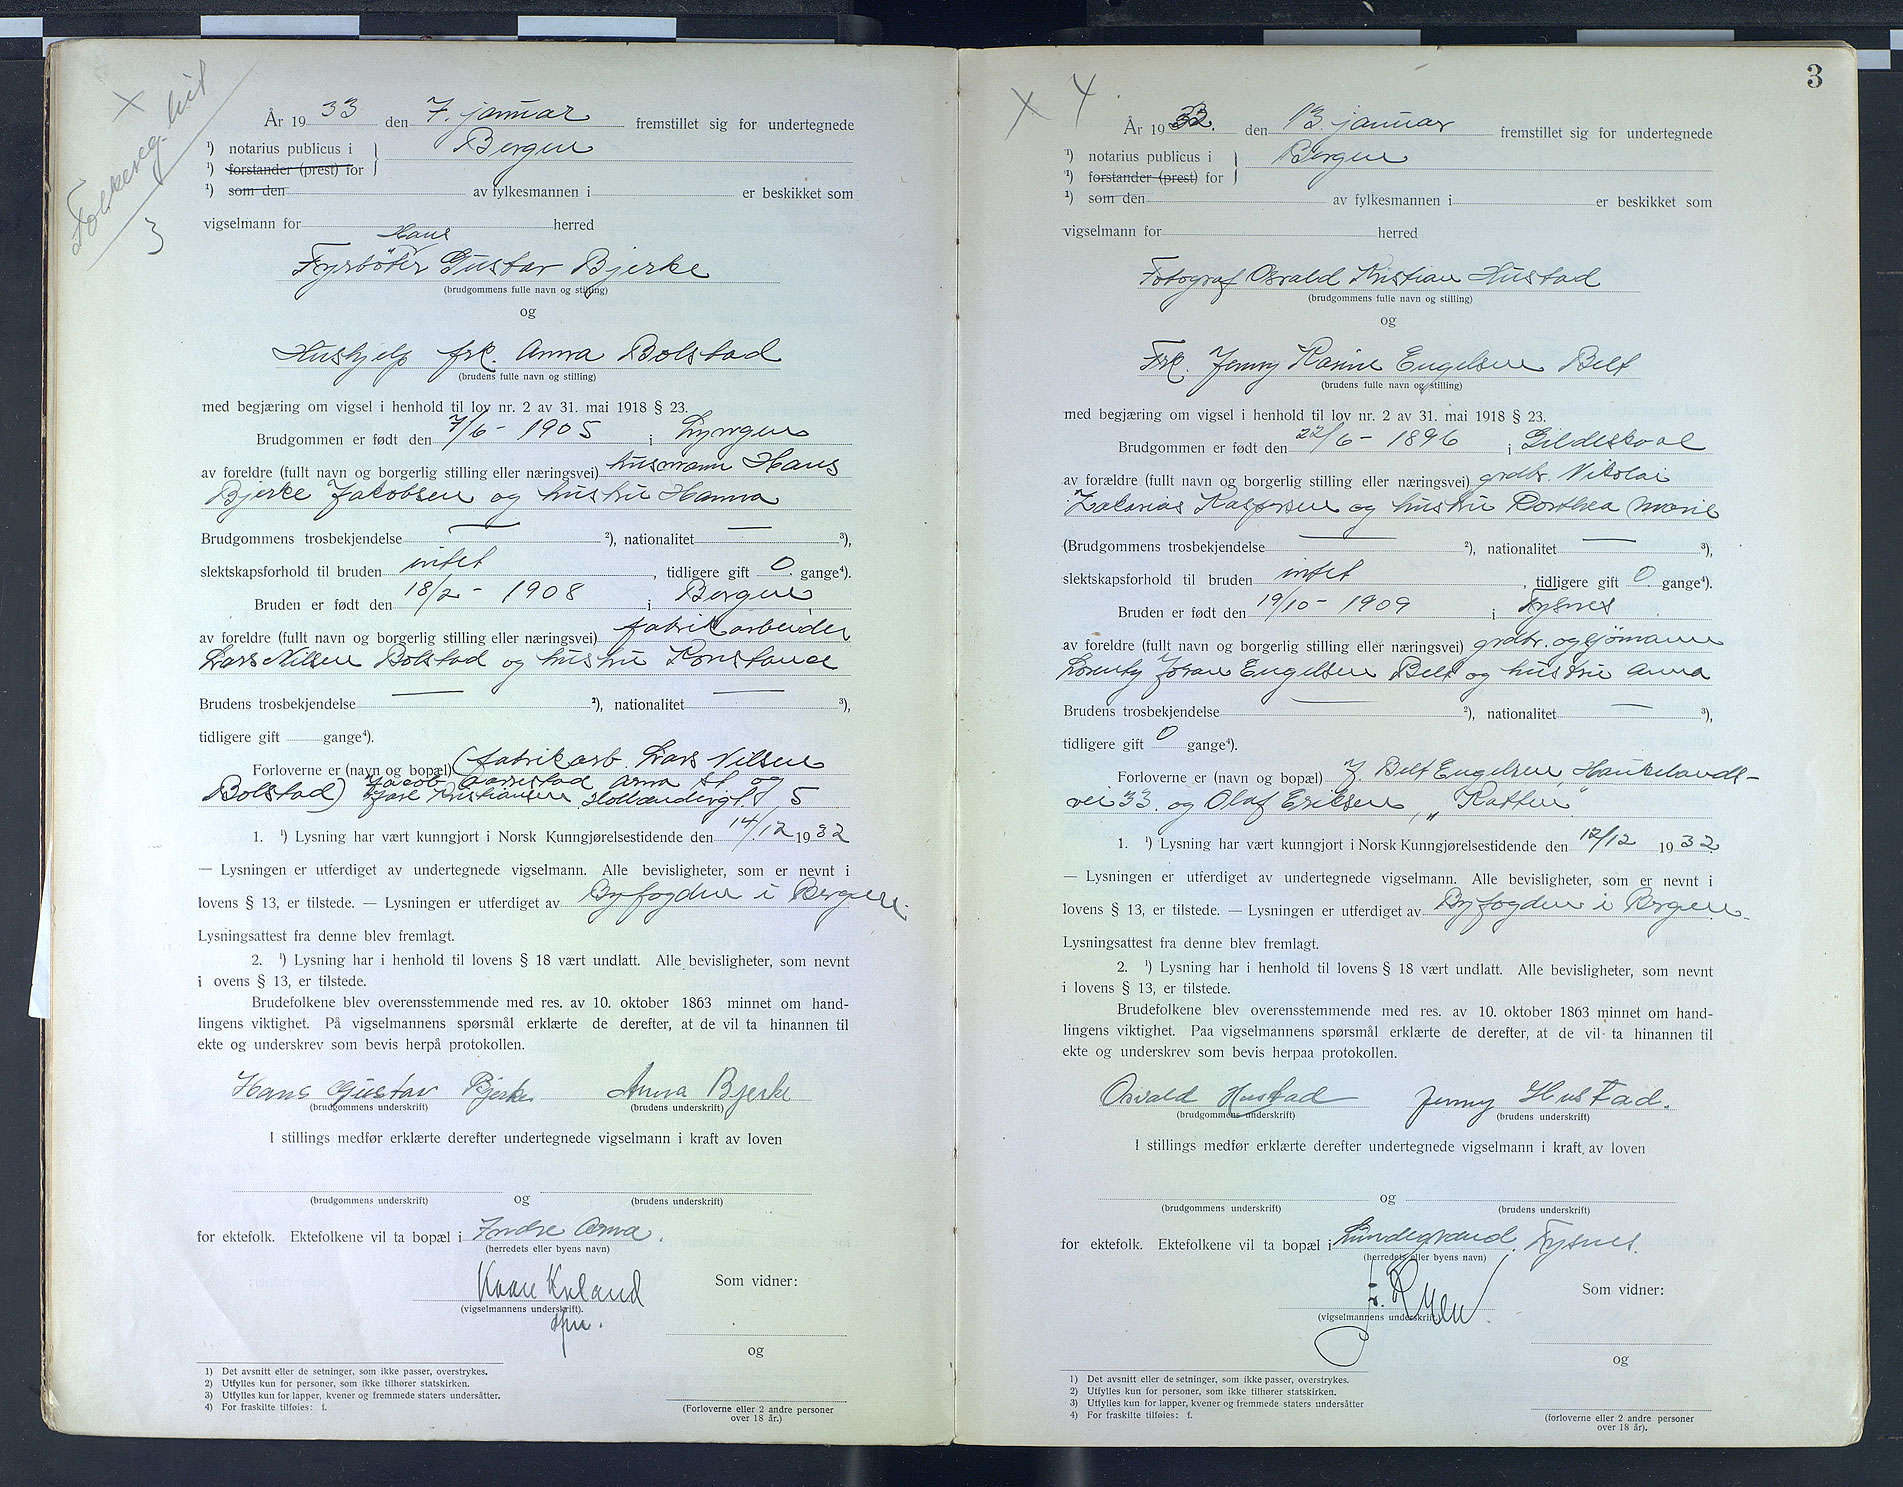 ×
Folkereg.
3
År 1933 den 7. januar fremstillet sig for undertegnede
¹) notarius publicus i } Bergen
¹) forstander (prest) for
¹) som den av fylkesmannen i er beskikket som
vigselmann for herred
Hans
Fyrbøter Gustav Bjerke
(brudgommens fulle navn og stilling)
og
Hushjelp frk. Anna Bolstad
(brudens fulle navn og stilling)
med begjæring om vigsel i henhold til lov nr. 2 av 31. mai 1918 § 23.
Brudgommen er født den 7/6 - 1905 i Lyngen
av foreldre (fullt navn og borgerlig stilling eller næringsvei) husmann Hans
Bjerke Jakobsen og hustru Hanna
Brudgommens trosbekjendelse — ²), nationalitet — ³),
slektskapsforhold til bruden intet, tidligere gift 0 gange⁴).
Bruden er født den 18/2 - 1908 i Bergen,
av foreldre (fullt navn og borgerlig stilling eller næringsvei) fabrikarbeider
Lars Nilsen Bolstad og hustru Konstanse
Brudens trosbekjendelse — ²), nationalitet — ³),
tidligere gift gange⁴).
Forloverne er (navn og bopæl) (fabrikarb. Lars Nilsen
Bolstad) Jacob Aarrestad Arna st og
Kristiansen, Hollændergt. 5
1. ¹) Lysning har vært kunngjort i Norsk Kunngjørelsestidende den 14/12 1932
— Lysningen er utferdiget av undertegnede vigselmann. Alle bevisligheter, som er nevnt i
lovens § 13, er tilstede. — Lysningen er utferdiget av Byfogden i Bergen.
Lysningsattest fra denne blev fremlagt.
2. ¹) Lysning har i henhold til lovens § 18 vært undlatt. Alle bevisligheter, som nevnt
i ovens § 13, er tilstede.
Brudefolkene blev overensstemmende med res. av 10. oktober 1863 minnet om hand-
lingens viktighet. På vigselmannens spørsmål erklærte de derefter, at de vil ta hinannen til
ekte og underskrev som bevis herpå protokollen.
Hans Gustav Bjerke Anna Bjerke
(brudgommens underskrift) (brudens underskrift)
I stillings medfør erklærte derefter undertegnede vigselmann i kraft av loven
og
(brudgommens underskrift) (brudens underskrift)
for ektefolk. Ektefolkene vil ta bopæl i Indre Arna.
(herredets eller byens navn)
Som vidner:
(vigselmannens underskrift).
og
1) Det avsnitt eller de setninger, som ikke passer, overstrykes.
2) Utfylles kun for personer, som ikke tilhører statskirken.
3) Utfylles kun for lapper, kvener og fremmede staters undersåtter.
4) For fraskilte tilføies: f.
(Forloverne eller 2 andre personer
over 18 år.)
3
× 4
År 1933. den 13. januar fremstillet sig for undertegnede
¹) notarius publicus i } Bergen
¹) forstander (prest) for
¹) som den av fylkesmannen i er beskikket som
vigselmann for herred
Fotograf Osvald Kristian Hustad
(brudgommens fulle navn og stilling)
og
Frk. Jenny Karine Engelsen Belt
(brudens fulle navn og stilling)
med begjæring om vigsel i henhold til lov nr. 2 av 31. mai 1918 § 23.
Brudgommen er født den 22/6 - 1896 i Gildeskaal
av forældre (fullt navn og borgerlig stilling eller næringsvei) grdbr. Nikolai
Zakarias Kaspersen og hustru Dorthea Marie
(Brudgommens trosbekjendelse — ²), nationalitet — ³),
slektskapsforhold til bruden intet, tidligere gift 0 gange⁴).
Bruden er født den 19/10 - 1909 i Tysnes
av foreldre (fullt navn og borgerlig stilling eller næringsvei) grdbr. og sjømann
Lorentz Johan Engelsen Belt og hustru Anna
Brudens trosbekjendelse — ²), nationalitet — ³),
tidligere gift 0 gange⁴).
Forloverne er (navn og bopæl) J. Belt Engelsen, Haukelands-
vei 33. og Olaf Eriksen, "Ratten"
1. ¹) Lysning har vært kunngjort i Norsk Kunngjørelsestidende den 12/12 1932
— Lysningen er utferdiget av undertegnede vigselmann. Alle bevisligheter, som er nevnt i
lovens § 13, er tilstede. — Lysningen er utferdiget av Byfogden i Bergen.
Lysningsattest fra denne blev fremlagt.
2. ¹) Lysning har i henhold til lovens § 18 vært undlatt. Alle bevisligheter, som nevnt
i lovens § 13, er tilstede.
Brudefolkene blev overensstemmende med res. av 10. oktober 1863 minnet om hand-
lingens viktighet. Paa vigselmannens spørsmål erklærte de derefter, at de vil ta hinannen til
ekte og underskrev som bevis herpaa protokollen.
Osvald Hustad Jenny Hustad.
(brudgommens underskrift) (brudens underskrift)
I stillings medfør erklærte derefter undertegnede vigselmann i kraft av loven
og
(brudgommens underskrift) (brudens underskrift)
for ektefolk. Ektefolkene vil ta bopæl i Lundegrend, Tysnes.
(herredets eller byens navn)
Som vidner:
(vigselmannens underskrift).
og
1) Det avsnitt eller de setninger, som ikke passer, overstrykes.
2) Utfylles kun for personer, som ikke tilhører statskirken.
3) Utfylles kun for lapper, kvener og fremmede staters undersåtter
4) For fraskilte tilføies: f.
(forloverne eller 2 andre personer
over 18 år).